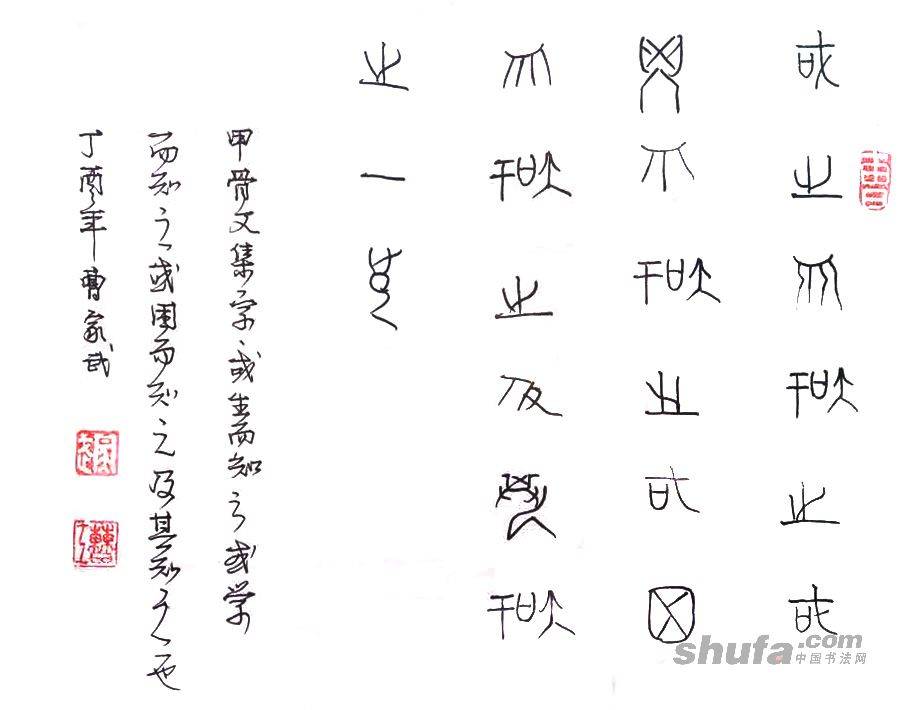 或生而知之或
学而知之或困
而知之及其知
之一也
甲骨文集字或生而知之或学
而知之或困而知之及其知之一也
丁酉年曹家武
shufa.com
中国书法网